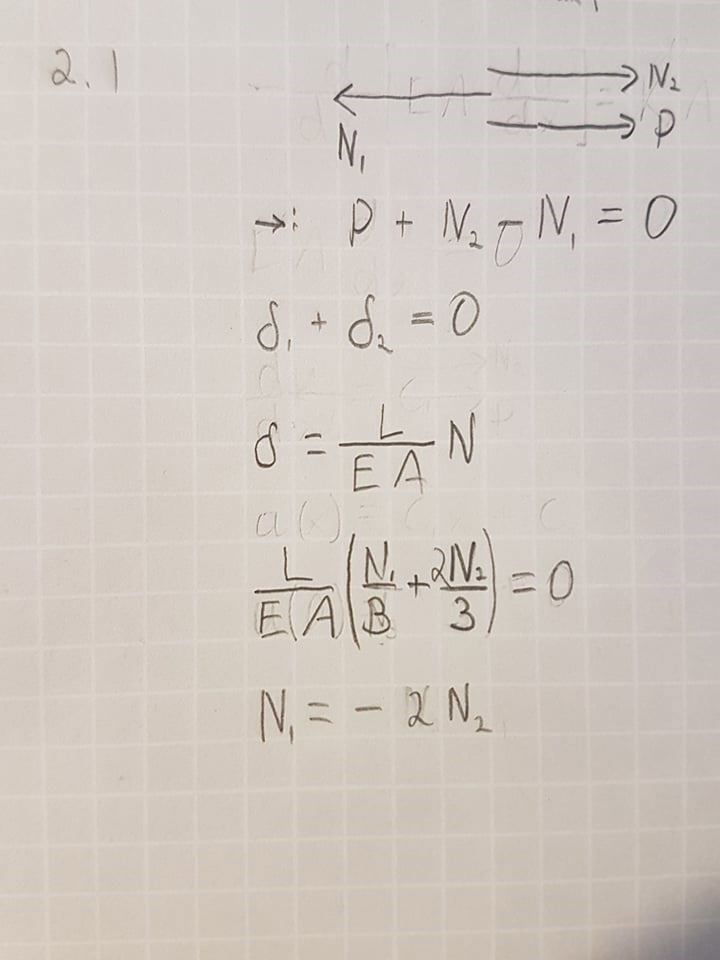 2.1
N₂
N₁
P
→: P + N₂ - N₁ = 0
δ₁ + δ₂ = 0
δ = L/(EA) N
L/(EA) (N₁/B + 2N₂/3) = 0
N₁ = - 2 N₂